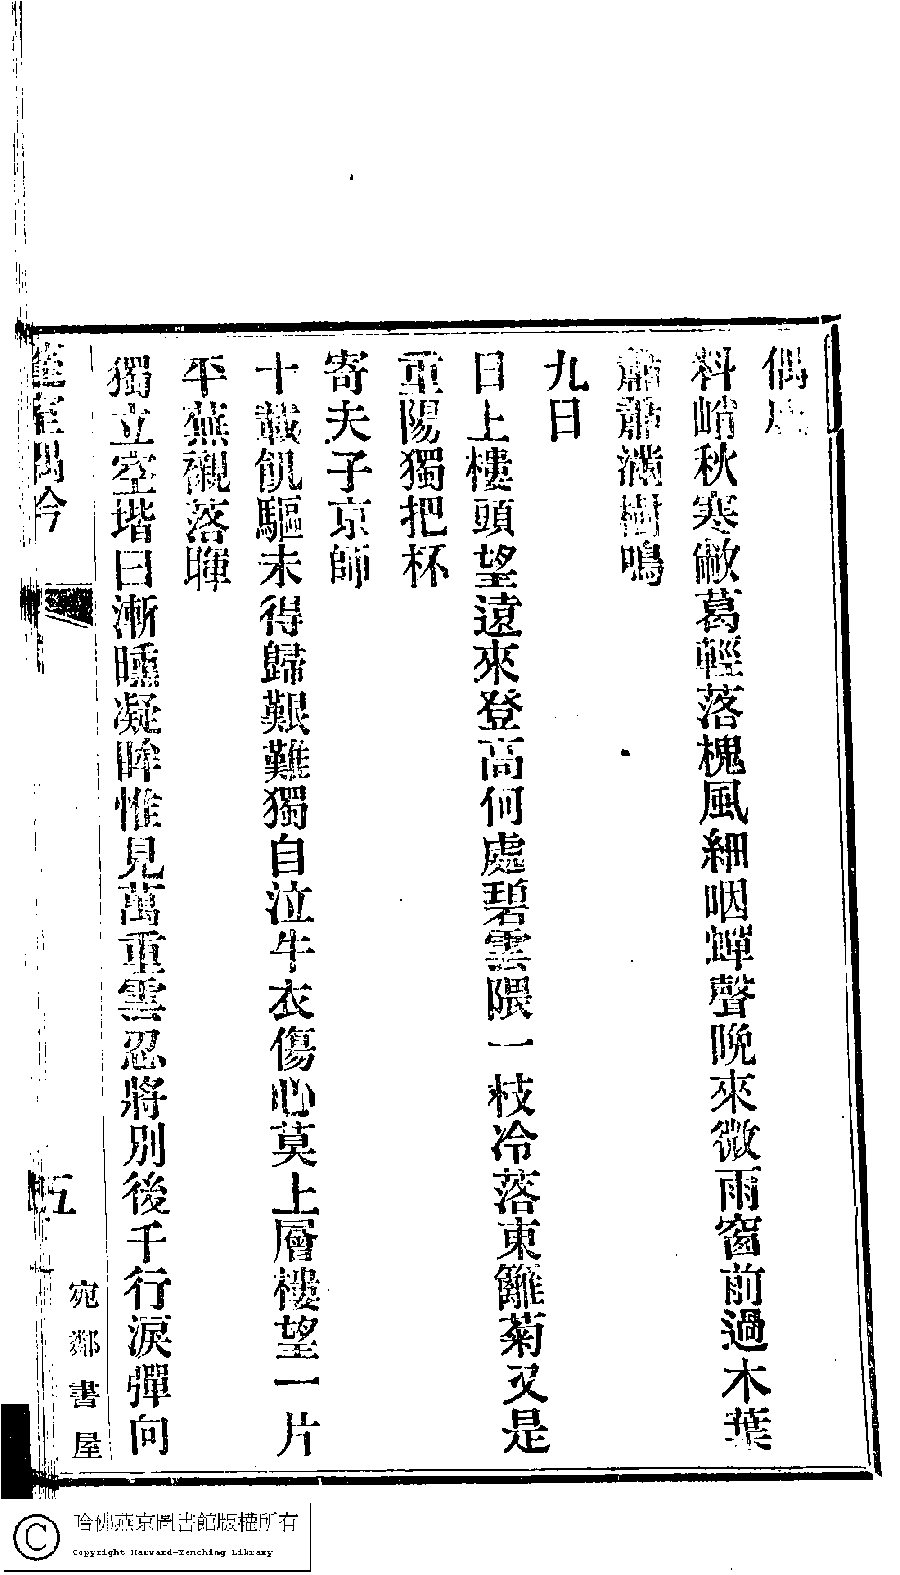 偶
料峭秋寒敝葛輕落槐風細咽蟬聲晚來微雨窗前過木葉
蕭蕭滿樹鳴
九日
日上樓頭望遠來登高何處碧雲隈一枝冷落東籬菊又是
重陽獨把杯
寄夫子京師
十載飢驅未得歸艱難獨自泣牛衣傷心莫上層樓望一片
平蕪襯落暉
獨立空堦日漸曛凝眸惟見萬重雲忍將別後千行淚彈向
室偶今
五
宛鄰書屋
哈佛燕京圖書館版權所有
Copyright Harvard-Yenching Library